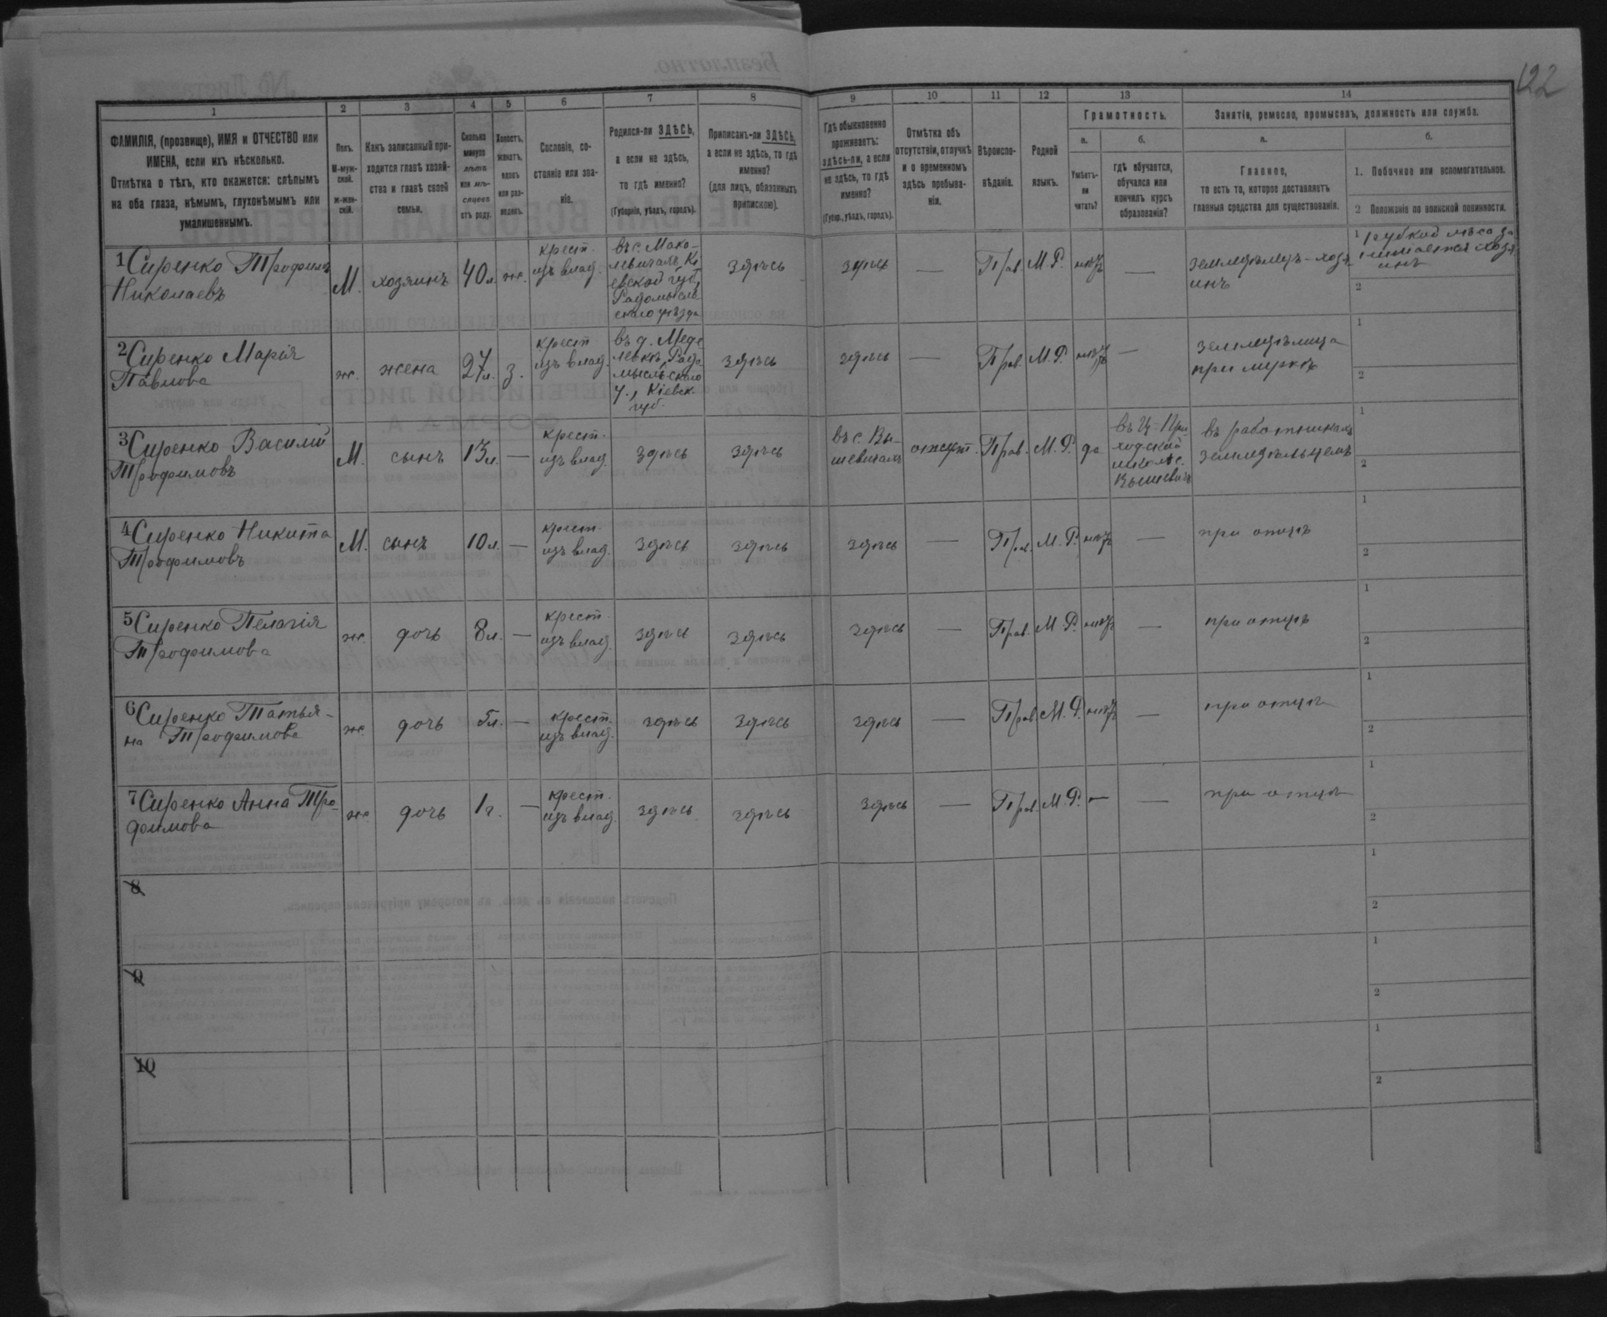 122
1 2 3 4 5 6 7 8 9 10 11 12 13 14
ФАМИЛІЯ, (прозвище), ИМЯ и ОТЧЕСТВО или
ИМЕНА, если ихъ нѣсколько.
Отмѣтка о тѣхъ, кто окажется: слѣпымъ
на оба глаза, нѣмымъ, глухонѣмымъ или
умалишеннымъ.
Полъ.
М-муж-
ской.
ж-жен-
скій.
Какъ записанный при-
ходится главѣ хозяй-
ства и главѣ своей
семьи.
Сколько
минуло
лѣтъ
или мѣ-
сяцевъ
отъ роду.
Холостъ,
женатъ,
вдовъ
или раз-
веденъ.
Сословіе, со-
стояніе или зва-
ніе.
Родился-ли ЗДѢСЬ,
а если не здѣсь,
то гдѣ именно?
(Губернія, уѣздъ, городъ).
Приписанъ-ли ЗДѢСЬ,
а если не здѣсь, то гдѣ
именно?
(для лицъ, обязанныхъ
припискою).
Гдѣ обыкновенно
проживаетъ:
здѣсь-ли, а если
не здѣсь, то гдѣ
именно?
(Губер., уѣздъ, городъ).
Отмѣтка объ
отсутствіи, отлучкѣ
и о временномъ
здѣсь пребыва-
ніи.
Вѣроиспо-
вѣданіе.
Родной
языкъ.
Грамотность.
а.
Умѣетъ-
ли
читать?
б.
гдѣ обучается,
обучался или
кончилъ курсъ
образованія?
Занятіе, ремесло, промыселъ, должность или служба.
а.
Главное,
то есть то, которое доставляетъ
главныя средства для существованія.
б.
1. Побочное или вспомогательное.
2 Положеніе по воинской повинности.
1 Сиренко Трофимъ
Николаевъ
М. хозяинъ 40 л. ж.
крест.
изъ влад.
въ с. Мако-
левичахъ Кі
евской губ.,
Радомысль
скаго уѣзда
здѣсь здѣсь — Прав. М. Р. нѣтъ —
земледѣлецъ-хозя
инъ
1 рубкой лѣса за
нимается хозя
инъ
2
2 Сиренко Марія
Павлова
ж. жена 27 л. з.
крест
изъ влад.
здѣсь здѣсь — Прав. М. Р. нѣтъ —
при мужѣ
1
2
3 Сиренко Василій
Трофимовъ
М. сынъ 13 л. —
крест.
изъ влад.
здѣсь здѣсь
въ с. Вы-
шевичахъ
отсут. Прав. М. Р. да
въ Ц-При
ходской
школѣ с.
Вышевичъ
въ работникахъ
1
2
4 Сиренко Никита
Трофимовъ
М. сынъ 10 л. —
крест.
изъ влад.
здѣсь здѣсь здѣсь — Прав. М. Р. нѣтъ — при отцѣ
1
2
5 Сиренко Пелагія
Трофимова
ж. дочь 8 л. —
крест.
изъ влад.
здѣсь здѣсь здѣсь — Прав. М. Р. нѣтъ — при отцѣ
1
2
6 Сиренко Татья-
на Трофимова
ж. дочь 5 л. —
крест.
изъ влад.
здѣсь здѣсь здѣсь — Прав. М. Р. нѣтъ — при отцѣ
1
2
7 Сиренко Анна Тро-
фимова
ж. дочь 1 г. —
крест.
изъ влад.
здѣсь здѣсь здѣсь — Прав. М. Р. — — при отцѣ
1
2
8
1
2
9
1
2
10
1
2